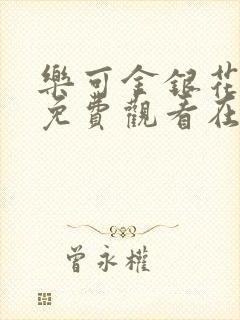 樂可金銀花
免費觀看在
曾永權